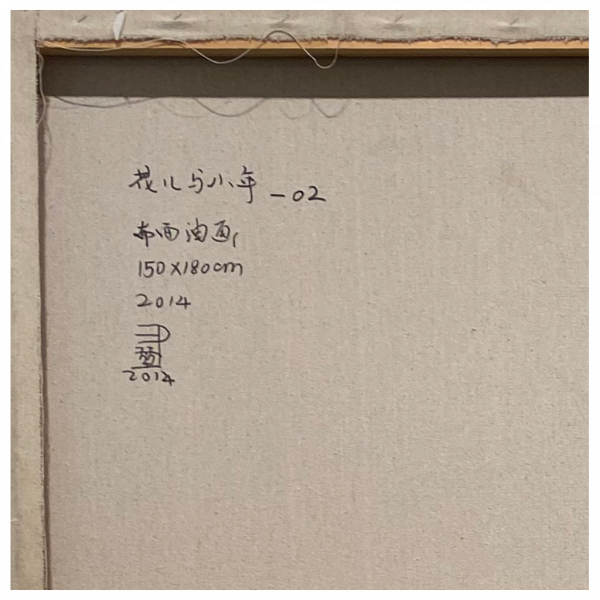 花儿与少年 -02
布面油画
150X180cm
2014
2014